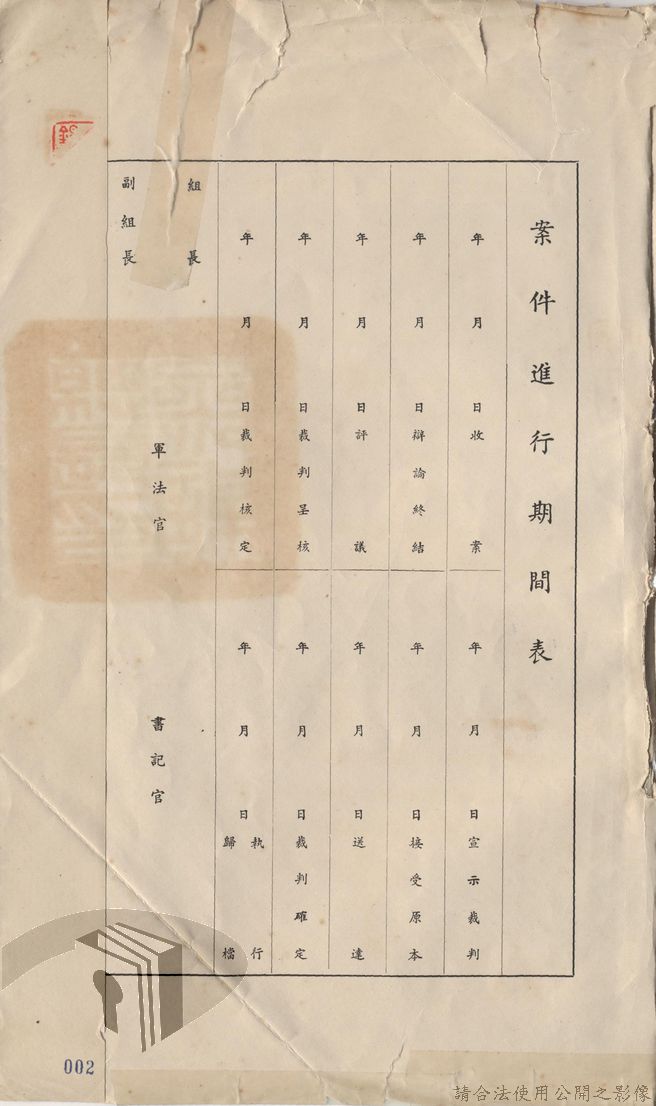 案件進行期間表
年月日收案
年月日宣示裁判
年月日辯論終結
年月日接受原本
年月日評議
年月日送達
年月日裁判呈核
年月日裁判確定
年月日裁判核定
年月日執行歸檔
組長
副組長
軍法官
書記官
002
請合法使用公開之影像